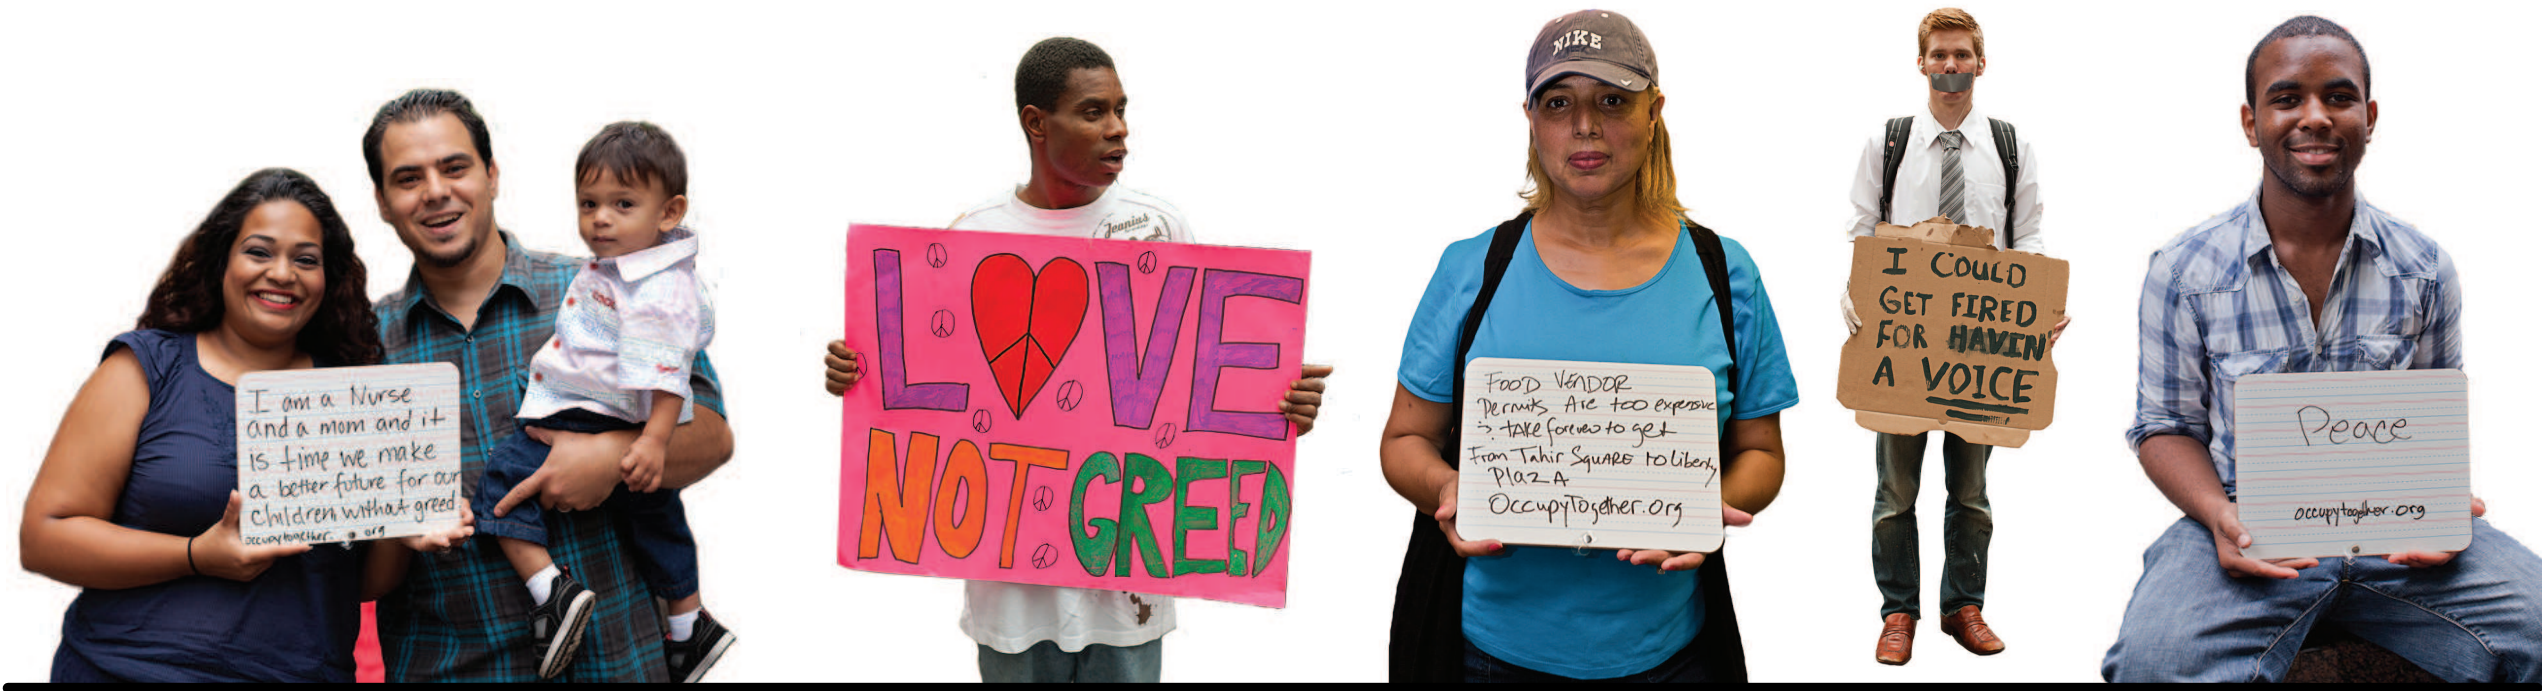 I am a Nurse
and a mom and it
is time we make
a better future for our
children without greed
occupytogether. org
Jeanius
LOVE
NOT GREED
NIKE
FOOD VENDOR
Permits Are too expensive
take forever to get
From Tahir SQUARE to Liberty
PlazA
OccupyTogether.org
I COULD
GET FIRED
FOR HAVIN'
A VOICE
Peace
occupytogether.org